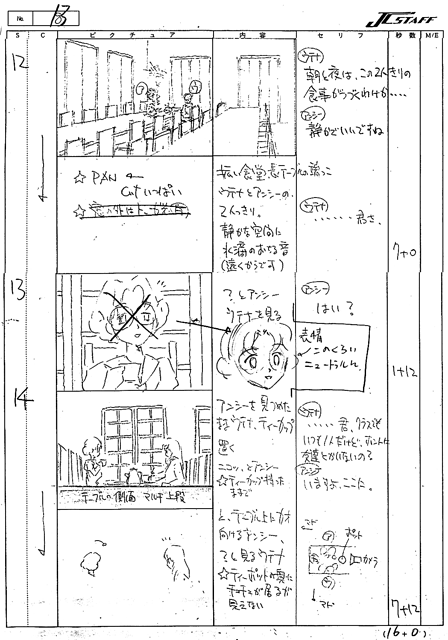 No. 13
J.C.STAFF
S C ピクチュア 内容 セリフ 秒数 M/E
12
ウテナ
朝と夜は、この2人きりの
食事がつづくわけか‥‥
アンシー
静かでいいですね
☆ PAN ←
Cutいっぱい
広い食堂、長テーブルの端っこ
ウテナとアンシーの、
2人っきり。
静かな空間に
水滴のおちる音
(遠くからです)
ウテナ
‥‥‥君さ、
7+0
13
?とアンシー
ウテナを見る
アンシー
はい?
表情
このくらい
ニュートラルに
1+12
14
テーブルの側面 マルチ上段
アンシーを見つめた
ままウテナ、ティーカップ
置く
ニコッ、とアンシー
☆ティーカップ持った
ままで
ウテナ
‥‥‥君、クラスでも
いつも1人だけど、ホントに
友達とかいないの?
アンシー
いますよ、ここに。
と、テーブル上にカオ
向けるアンシー、
?と見るウテナ
☆ティーポットの裏に
チュチュが居るが
見えない
マド
ポット
カメラ
マド
7+12
(16+0)